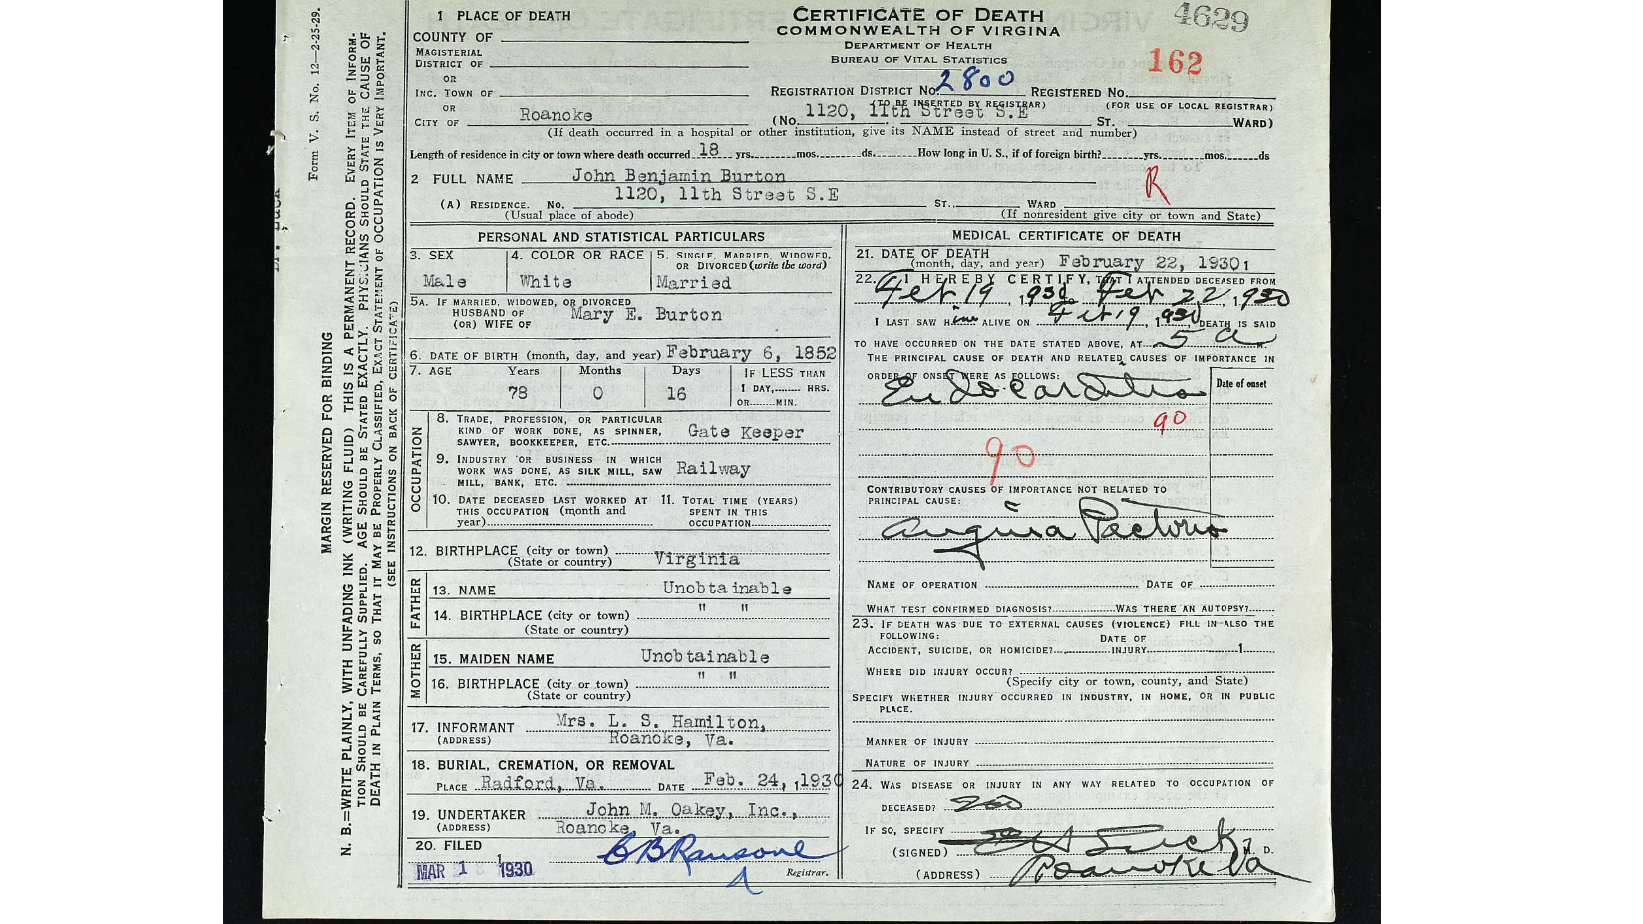 Form V. S. No. 12—2-25-29.
MARGIN RESERVED FOR BINDING
N. B.=WRITE PLAINLY, WITH UNFADING INK (WRITING FLUID) THIS IS A PERMANENT RECORD. EVERY ITEM OF INFORM-
TION SHOULD BE CAREFULLY SUPPLIED. AGE SHOULD BE STATED EXACTLY. PHYSICIANS SHOULD STATE THE CAUSE OF
DEATH IN PLAIN TERMS, SO THAT IT MAY BE PROPERLY CLASSIFIED. EXACT STATEMENT OF OCCUPATION IS VERY IMPORTANT.
(SEE INSTRUCTIONS ON BACK OF CERTIFICATE)
1 PLACE OF DEATH
CERTIFICATE OF DEATH
COMMONWEALTH OF VIRGINIA
DEPARTMENT OF HEALTH
BUREAU OF VITAL STATISTICS
4629
162
COUNTY OF
MAGISTERIAL
DISTRICT OF
OR
INC. TOWN OF
REGISTRATION DISTRICT No. 2800 REGISTERED No.
(TO BE INSERTED BY REGISTRAR) (FOR USE OF LOCAL REGISTRAR)
OR
CITY OF Roanoke (No. 1120, 11th Street S.E ST. WARD)
(If death occurred in a hospital or other institution, give its NAME instead of street and number)
Length of residence in city or town where death occurred 18 yrs. mos. ds. How long in U. S., if of foreign birth? yrs. mos. ds
2 FULL NAME John Benjamin Burton
R
(A) RESIDENCE. No. 1120, 11th Street S.E ST., WARD
(Usual place of abode) (If nonresident give city or town and State)
PERSONAL AND STATISTICAL PARTICULARS
3. SEX Male
4. COLOR OR RACE White
5. SINGLE, MARRIED, WIDOWED,
OR DIVORCED (write the word)
Married
5A. IF MARRIED, WIDOWED, OR DIVORCED
HUSBAND OF
(OR) WIFE OF
Mary E. Burton
6. DATE OF BIRTH (month, day, and year) February 6, 1852
7. AGE Years Months Days IF LESS THAN
1 DAY, HRS.
OR MIN.
78 0 16
OCCUPATION
8. TRADE, PROFESSION, OR PARTICULAR
KIND OF WORK DONE, AS SPINNER,
SAWYER, BOOKKEEPER, ETC. Gate Keeper
9. INDUSTRY OR BUSINESS IN WHICH
WORK WAS DONE, AS SILK MILL, SAW
MILL, BANK, ETC. Railway
10. DATE DECEASED LAST WORKED AT
THIS OCCUPATION (month and
year)
11. TOTAL TIME (YEARS)
SPENT IN THIS
OCCUPATION
12. BIRTHPLACE (city or town)
(State or country) Virginia
FATHER
13. NAME Unobtainable
14. BIRTHPLACE (city or town) " "
(State or country)
MOTHER
15. MAIDEN NAME Unobtainable
16. BIRTHPLACE (city or town) " "
(State or country)
17. INFORMANT Mrs. L. S. Hamilton,
(ADDRESS) Roanoke, Va.
18. BURIAL, CREMATION, OR REMOVAL
PLACE Radford, Va. DATE Feb. 24, , 1930
19. UNDERTAKER John M. Oakey, Inc.,
(ADDRESS) Roanoke, Va.
20. FILED
MAR 1 1930 C B Ransone
Registrar.
MEDICAL CERTIFICATE OF DEATH
21. DATE OF DEATH
(month, day, and year) February 22, 1930
22. I HEREBY CERTIFY, THAT I ATTENDED DECEASED FROM
Feb 19, 1930, Feb 22, 1930
I LAST SAW Him ALIVE ON Feb 19, 1930, DEATH IS SAID
TO HAVE OCCURRED ON THE DATE STATED ABOVE, AT 5 a M.
THE PRINCIPAL CAUSE OF DEATH AND RELATED CAUSES OF IMPORTANCE IN
ORDER OF ONSET WERE AS FOLLOWS:
Date of onset
Endocarditis
90
90
CONTRIBUTORY CAUSES OF IMPORTANCE NOT RELATED TO
PRINCIPAL CAUSE:
Angina Pectoris
NAME OF OPERATION DATE OF
WHAT TEST CONFIRMED DIAGNOSIS? WAS THERE AN AUTOPSY?
23. IF DEATH WAS DUE TO EXTERNAL CAUSES (VIOLENCE) FILL IN ALSO THE
FOLLOWING:
DATE OF
ACCIDENT, SUICIDE, OR HOMICIDE? INJURY 1
WHERE DID INJURY OCCUR?
(Specify city or town, county, and State)
SPECIFY WHETHER INJURY OCCURRED IN INDUSTRY, IN HOME, OR IN PUBLIC
PLACE.
MANNER OF INJURY
NATURE OF INJURY
24. WAS DISEASE OR INJURY IN ANY WAY RELATED TO OCCUPATION OF
DECEASED? no
IF SO, SPECIFY
(SIGNED) M. D.
(ADDRESS) Roanoke Va